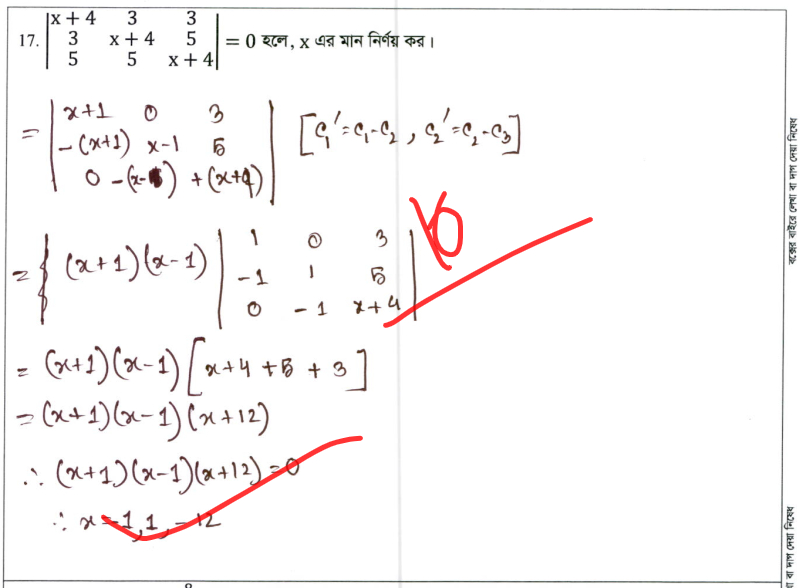 17. |x + 4 3 3|
|3 x + 4 5| = 0 হলে, x এর মান নির্ণয় কর।
|5 5 x + 4|
= |x+1 0 3|
|-(x+1) x-1 5| [c₁' = c₁-c₂ , c₂' = c₂-c₃]
|0 -(x-1) +(x+4)|
= (x+1)(x-1) |1 0 3|
|-1 1 5|
|0 -1 x+4|
= (x+1)(x-1) [x+4+5+3]
= (x+1)(x-1)(x+12)
∴ (x+1)(x-1)(x+12) = 0
∴ x = -1, 1, -12
বক্সের বাইরে লেখা বা দাগ দেয়া নিষেধ
া বা দাগ দেয়া নিষেধ